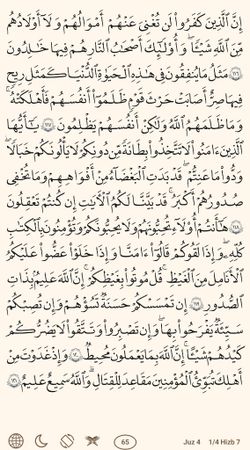 إِنَّ ٱلَّذِينَ كَفَرُوا۟ لَن تُغْنِىَ عَنْهُمْ أَمْوَٰلُهُمْ وَلَآ أَوْلَٰدُهُم
مِّنَ ٱللَّهِ شَيْـًٔا ۖ وَأُو۟لَٰٓئِكَ أَصْحَٰبُ ٱلنَّارِ ۚ هُمْ فِيهَا خَٰلِدُونَ
١١٦ مَثَلُ مَا يُنفِقُونَ فِى هَٰذِهِ ٱلْحَيَوٰةِ ٱلدُّنْيَا كَمَثَلِ رِيحٍ
فِيهَا صِرٌّ أَصَابَتْ حَرْثَ قَوْمٍ ظَلَمُوٓا۟ أَنفُسَهُمْ فَأَهْلَكَتْهُ ۚ
وَمَا ظَلَمَهُمُ ٱللَّهُ وَلَٰكِنْ أَنفُسَهُمْ يَظْلِمُونَ ١١٧ يَٰٓأَيُّهَا
ٱلَّذِينَ ءَامَنُوا۟ لَا تَتَّخِذُوا۟ بِطَانَةً مِّن دُونِكُمْ لَا يَأْلُونَكُمْ خَبَالًا
وَدُّوا۟ مَا عَنِتُّمْ قَدْ بَدَتِ ٱلْبَغْضَآءُ مِنْ أَفْوَٰهِهِمْ وَمَا تُخْفِى
صُدُورُهُمْ أَكْبَرُ ۚ قَدْ بَيَّنَّا لَكُمُ ٱلْءَايَٰتِ ۖ إِن كُنتُمْ تَعْقِلُونَ
١١٨ هَٰٓأَنتُمْ أُو۟لَآءِ تُحِبُّونَهُمْ وَلَا يُحِبُّونَكُمْ وَتُؤْمِنُونَ بِٱلْكِتَٰبِ
كُلِّهِۦ وَإِذَا لَقُوكُمْ قَالُوٓا۟ ءَامَنَّا وَإِذَا خَلَوْا۟ عَضُّوا۟ عَلَيْكُمُ
ٱلْأَنَامِلَ مِنَ ٱلْغَيْظِ ۚ قُلْ مُوتُوا۟ بِغَيْظِكُمْ ۗ إِنَّ ٱللَّهَ عَلِيمٌۢ بِذَاتِ
ٱلصُّدُورِ ١١٩ إِن تَمْسَسْكُمْ حَسَنَةٌ تَسُؤْهُمْ وَإِن تُصِبْكُمْ
سَيِّئَةٌ يَفْرَحُوا۟ بِهَا ۖ وَإِن تَصْبِرُوا۟ وَتَتَّقُوا۟ لَا يَضُرُّكُمْ
كَيْدُهُمْ شَيْـًٔا ۗ إِنَّ ٱللَّهَ بِمَا يَعْمَلُونَ مُحِيطٌ ١٢٠ وَإِذْ غَدَوْتَ مِنْ
أَهْلِكَ تُبَوِّئُ ٱلْمُؤْمِنِينَ مَقَٰعِدَ لِلْقِتَالِ ۗ وَٱللَّهُ سَمِيعٌ عَلِيمٌ ١٢١
65 Juz 4 1/4 Hizb 7